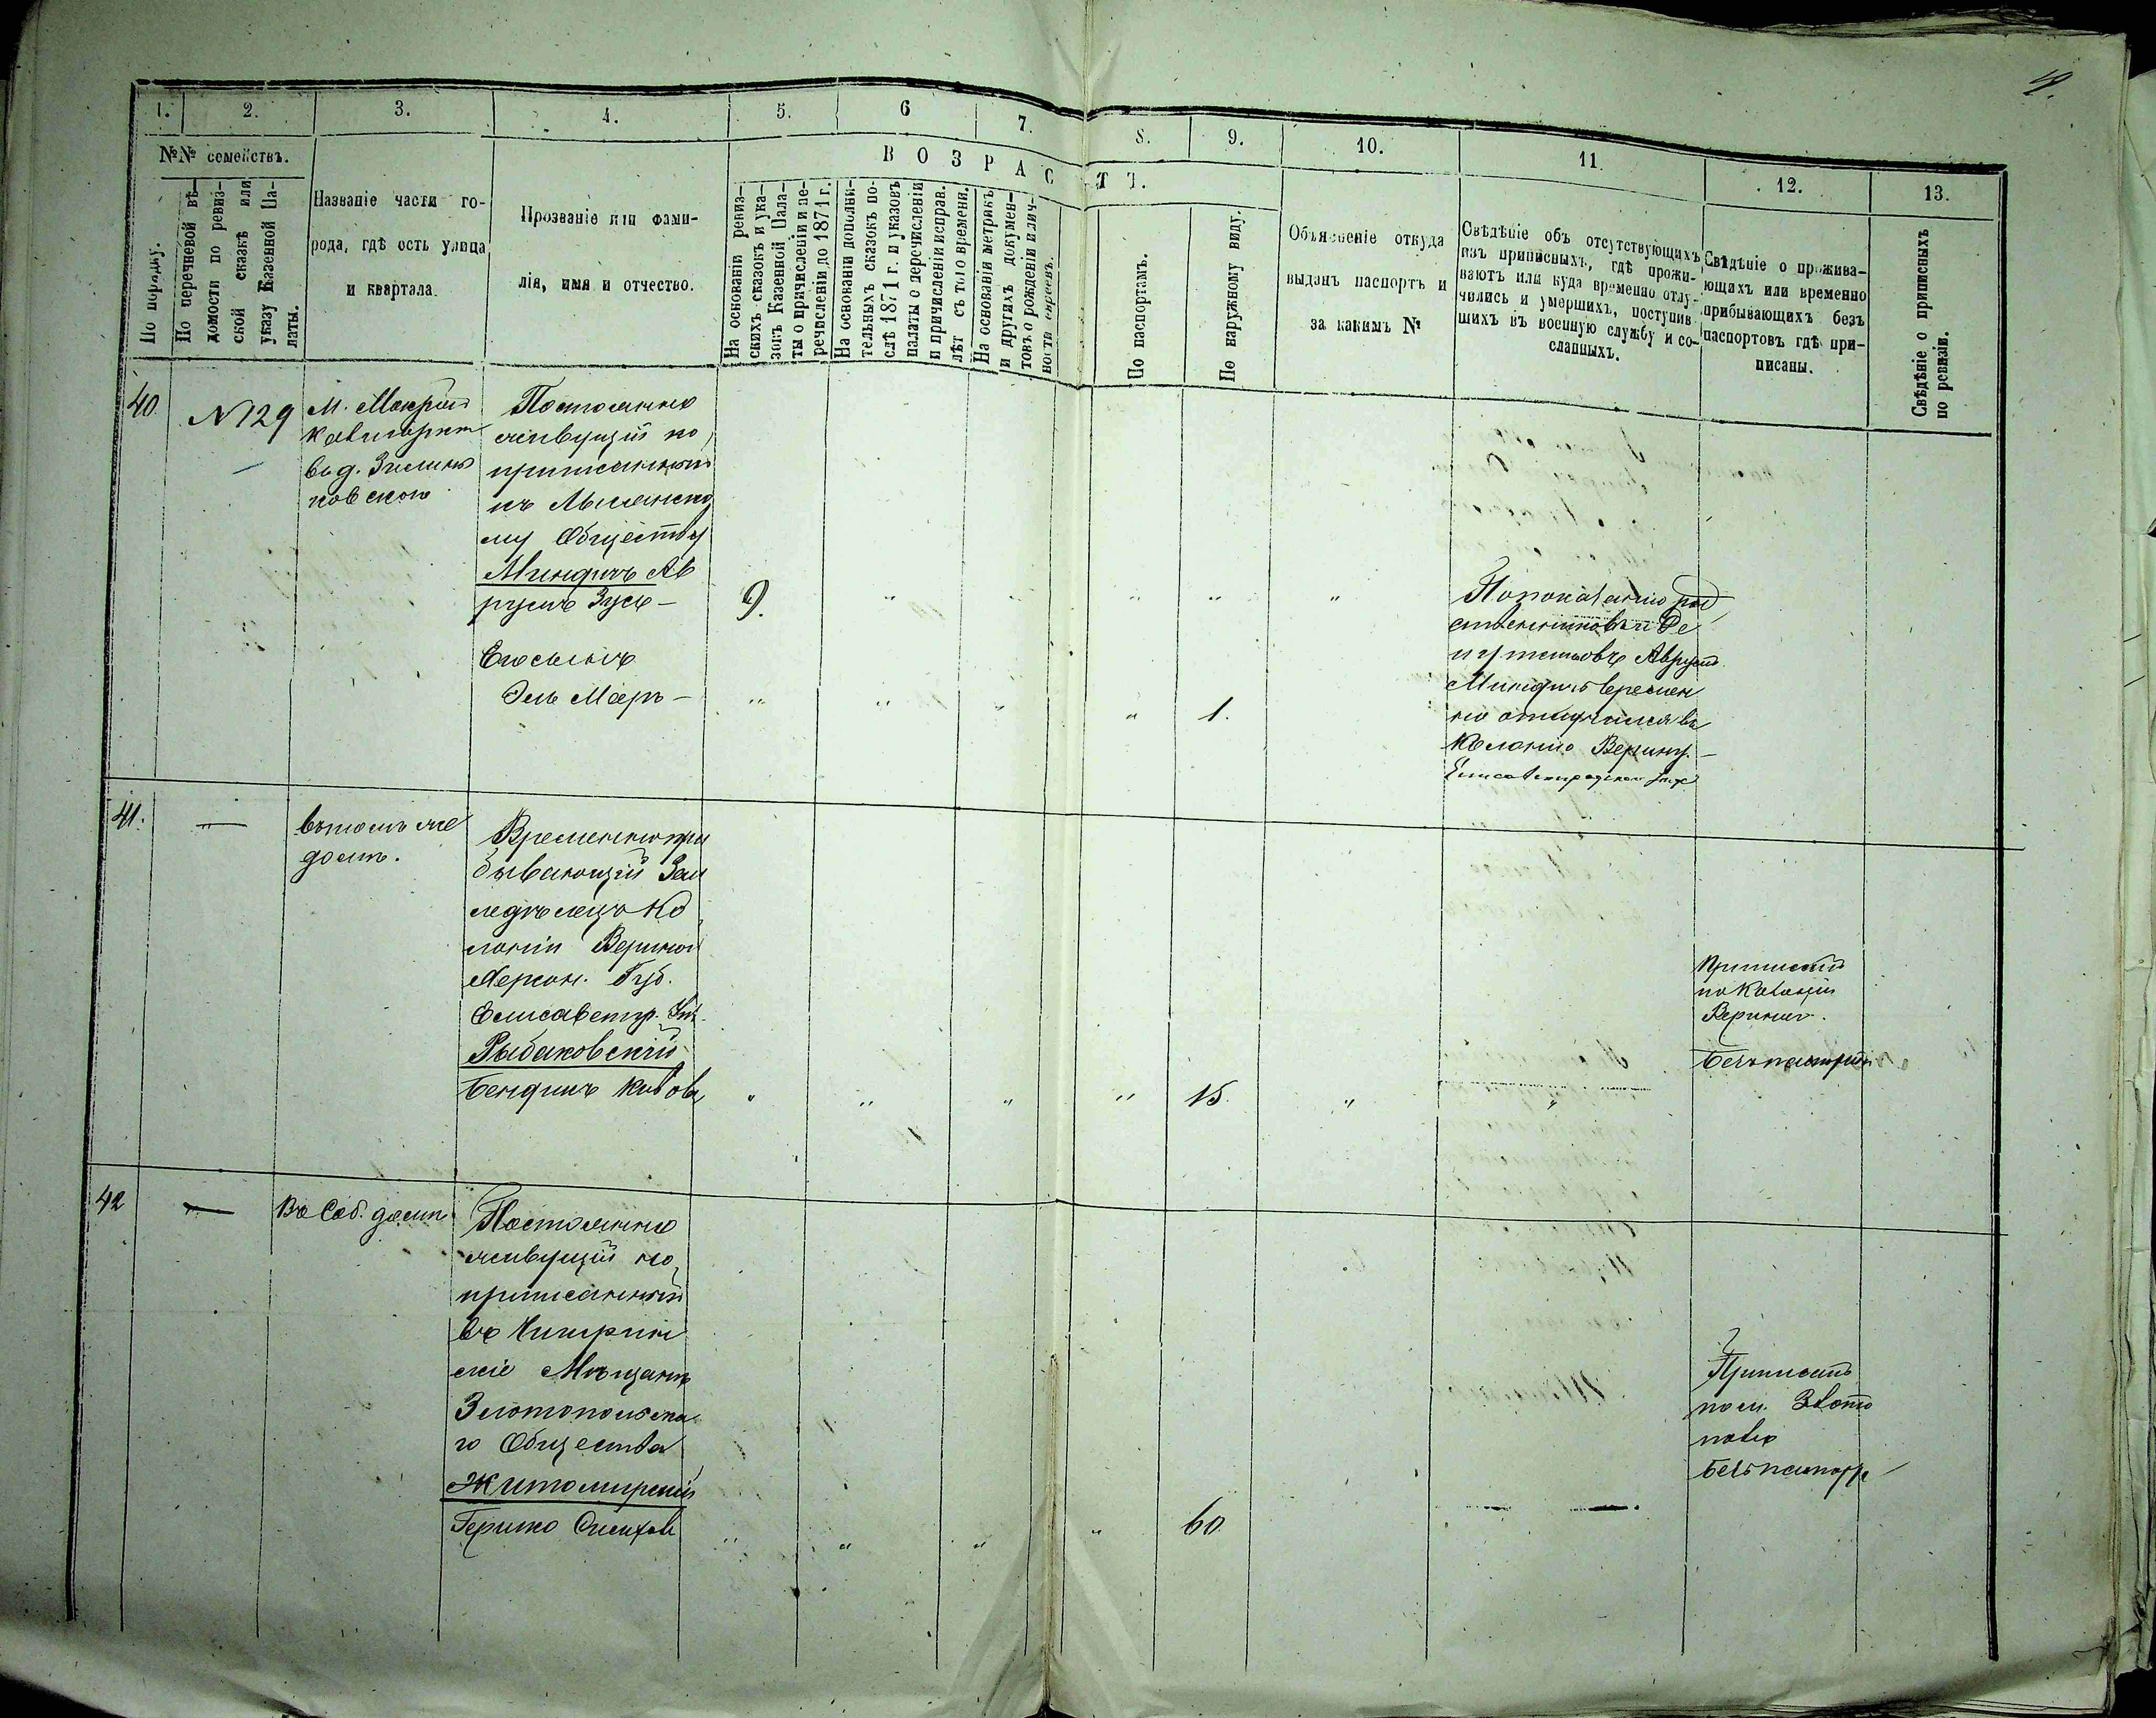 1.
2.
3.
4.
5.
6
7.
8.
9.
10.
11
12.
13.
№№ семействъ.
По порядку.
По перечневой вѣ-
домости по ревиз-
ской сказкѣ или
указу Казенной Па-
латы.
Названіе части го-
рода, гдѣ есть улица
и квартала.
Прозваніе или фами-
лія, имя и отчество.
ВОЗРАСТЪ.
На основаніи ревиз-
скихъ сказокъ и ука-
зовъ Казенной Пала-
ты о причисленіи и пе-
речисленіи до 1871 г.
На основаніи дополни-
тельныхъ сказокъ по-
слѣ 1871 г. и указовъ
палаты о перечисленіи
и причисленіи исправ.
лѣт съ того времени.
На основаніи метрикъ
и другихъ докумен-
товъ о рожденіи и лич-
ности евреевъ.
По паспортамъ.
По наружному виду.
Объясненіе откуда
выданъ паспортъ и
за какимъ №
Свѣдѣніе объ отсутствующихъ
изъ приписныхъ, гдѣ прожи-
ваютъ или куда временно отлу-
чились и умершихъ, поступив
шихъ въ военную службу и со-
сланныхъ.
Свѣдѣніе о прожива-
ющихъ или временно
прибывающихъ безъ
паспортовъ гдѣ при-
писаны.
Свѣдѣніе о приписныхъ
по ревизіи.
40.
№129
М. Мокрой
въ д.
Постоянно
живущій но
приписанный
къ
му Обществу
Миндичъ Ав
румъ Зусь –
9.
Его сынъ
Эль Мееръ –
1.
По показанію род
ственниковъ и Де
путатовъ Аврумъ
Миндичъ времен
но отлучился въ
Колонію Верину. –
Елисаветградскаго
41.
—
въ томъ же
домѣ.
Временно при
бывающій Зем
ледѣлецъ Ко
лоніи Верино
Херсон. Губ.
Елисаветгр. Уѣ.
Рыбаковскій
Бендитъ
15.
Приписанъ
по Колоніи
Верино.
Безъ паспорта
42
—
Въ Соб. домѣ
Постоянно
живущій но
приписанный
въ Чигирин
скіе Мѣщане
Златопольска
го Общества
Житомирскій
Гершко
60.
Приписанъ
по м. Злато
полю
безъ паспорт